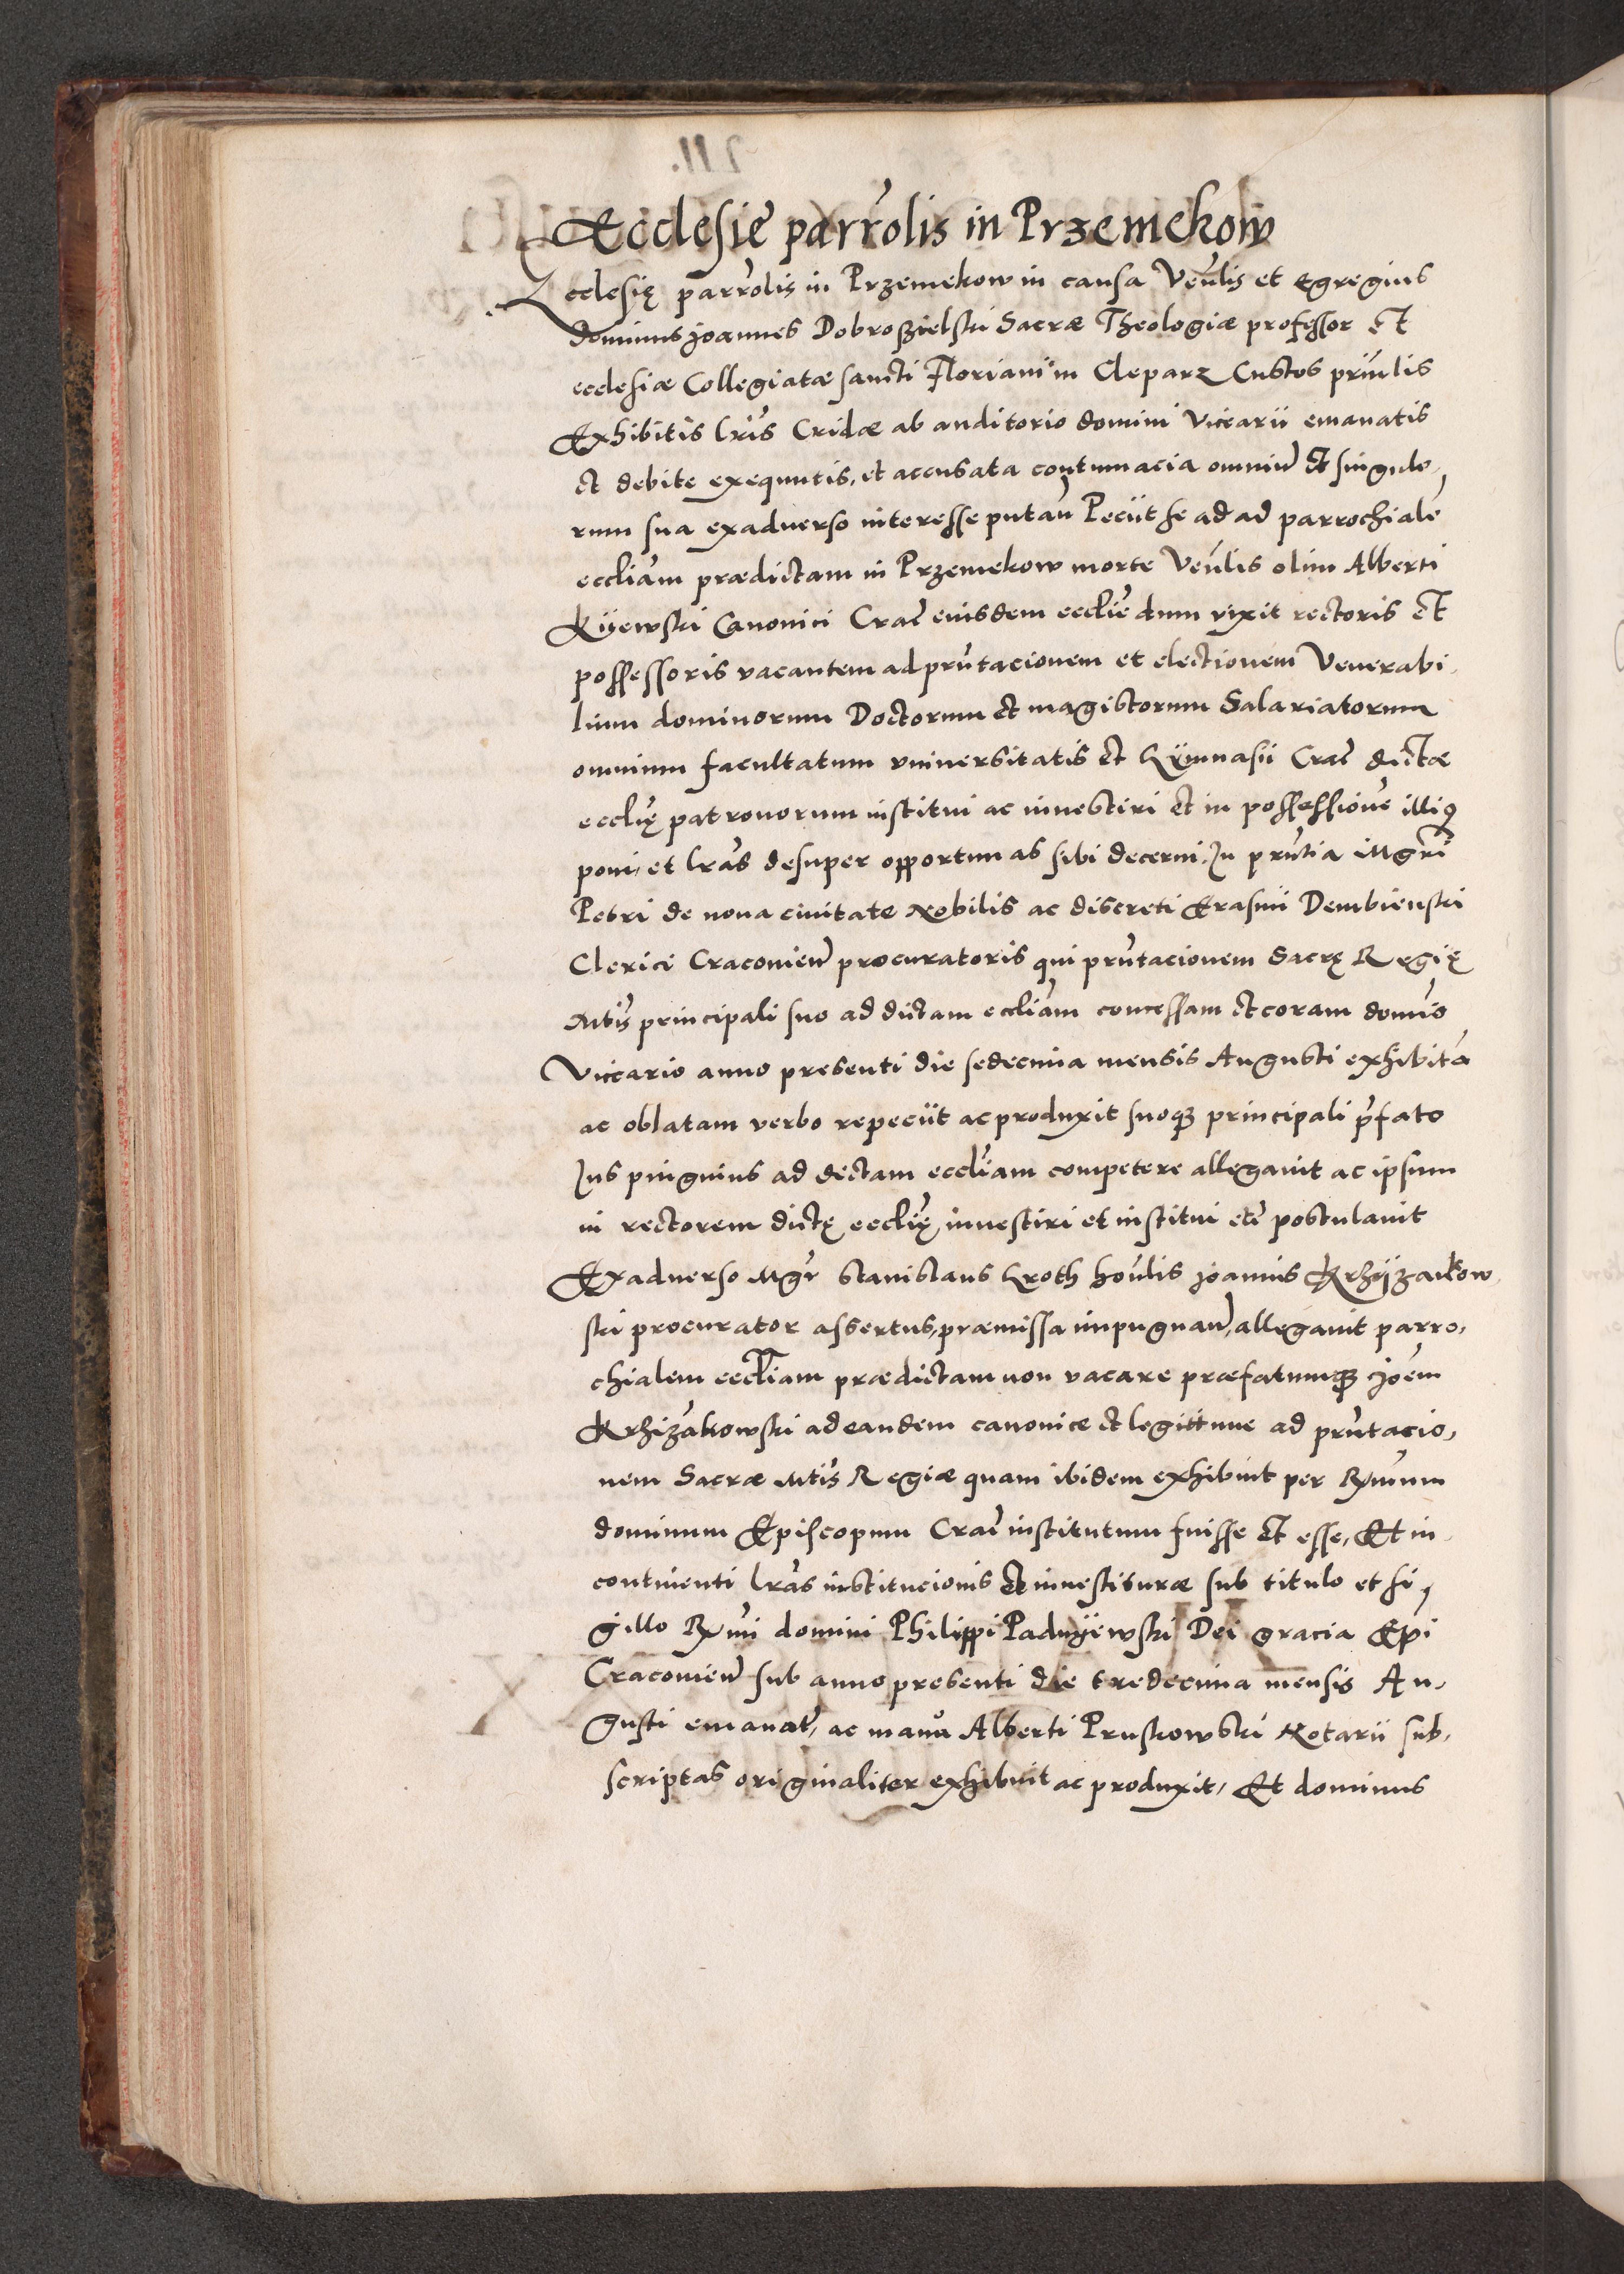 Ecclesie parrolis in Przemekow
Ecclesię parrolis in Przemekow in causa Veńlis et Egregius
dominus Joannes Dobroszielski Sacræ Theologiæ professor et
ecclesiæ Collegiatæ sancti Floriani in Cleparz Custos prinlis
Exhibitis lris Cridæ ab auditorio domini Vicarii emanatis
et debite exequutis, et accusata contumacia omniu et singulo,
rum sua exaduerso interesse putan Peciit se ad ad parrochiale
eccliam prædictam in Przemekow morte Venlis olim Alberti
Kijewski Canonici Crac eiusdem ecclie dum vixit rectoris et
possessoris vacantem ad prntacionem et electionem Venerabi,
lium dominorum Doctorum et magistorum Salariatorum
omnium facultatum vniuersitatis et Gymnasii Crac dictæ
ecclię patronorum institui ac inuestiri et in possessione illius
poni, et lras desuper opportunas sibi decerni. In prntia Mgri
Petri de noua ciuitate Nobilis ac discreti Erasmi Dembienski
Clerici Craconien procuratoris qui prntacionem Sacrę Regię
Mtis principali suo ad dictam eccliam concessam et coram domio
Vicario anno presenti die sedecima mensis Augusti exhibita
ac oblatam verbo repeciit ac produxit suoq principali pfato
Jus pinguius ad dectam eccliam competere allegauit ac ipsum
in rectorem dictę ecclię inuestiri et institui etc postulauit
Exaduerso Mgr Stanislaus Groth honlis Joannis Krzyzankow,
ski procurator assertus, præmissa impugnan, allegauit parro,
chialem eccliam prædictam non vacare præfatumq Joem
Krzizakowski ad eandem canonice et legittime ad prntacio,
nem Sacræ Mtis Regiæ quam ibidem exhibuit per Rmum
dominum Episcopum Crac institutum fuisse et esse, Et in
continenti lras institucionis et inuestituræ sub titulo et si,
gillo Rmi domini Philippi Padnijewski Dei gracia Epi
Cracouien sub anno presenti die tredecima mensis Au,
gusti emanat, ac manu Alberti Pruskowski Notarii sub,
scriptas originaliter exhibuit ac produxit, Et dominus